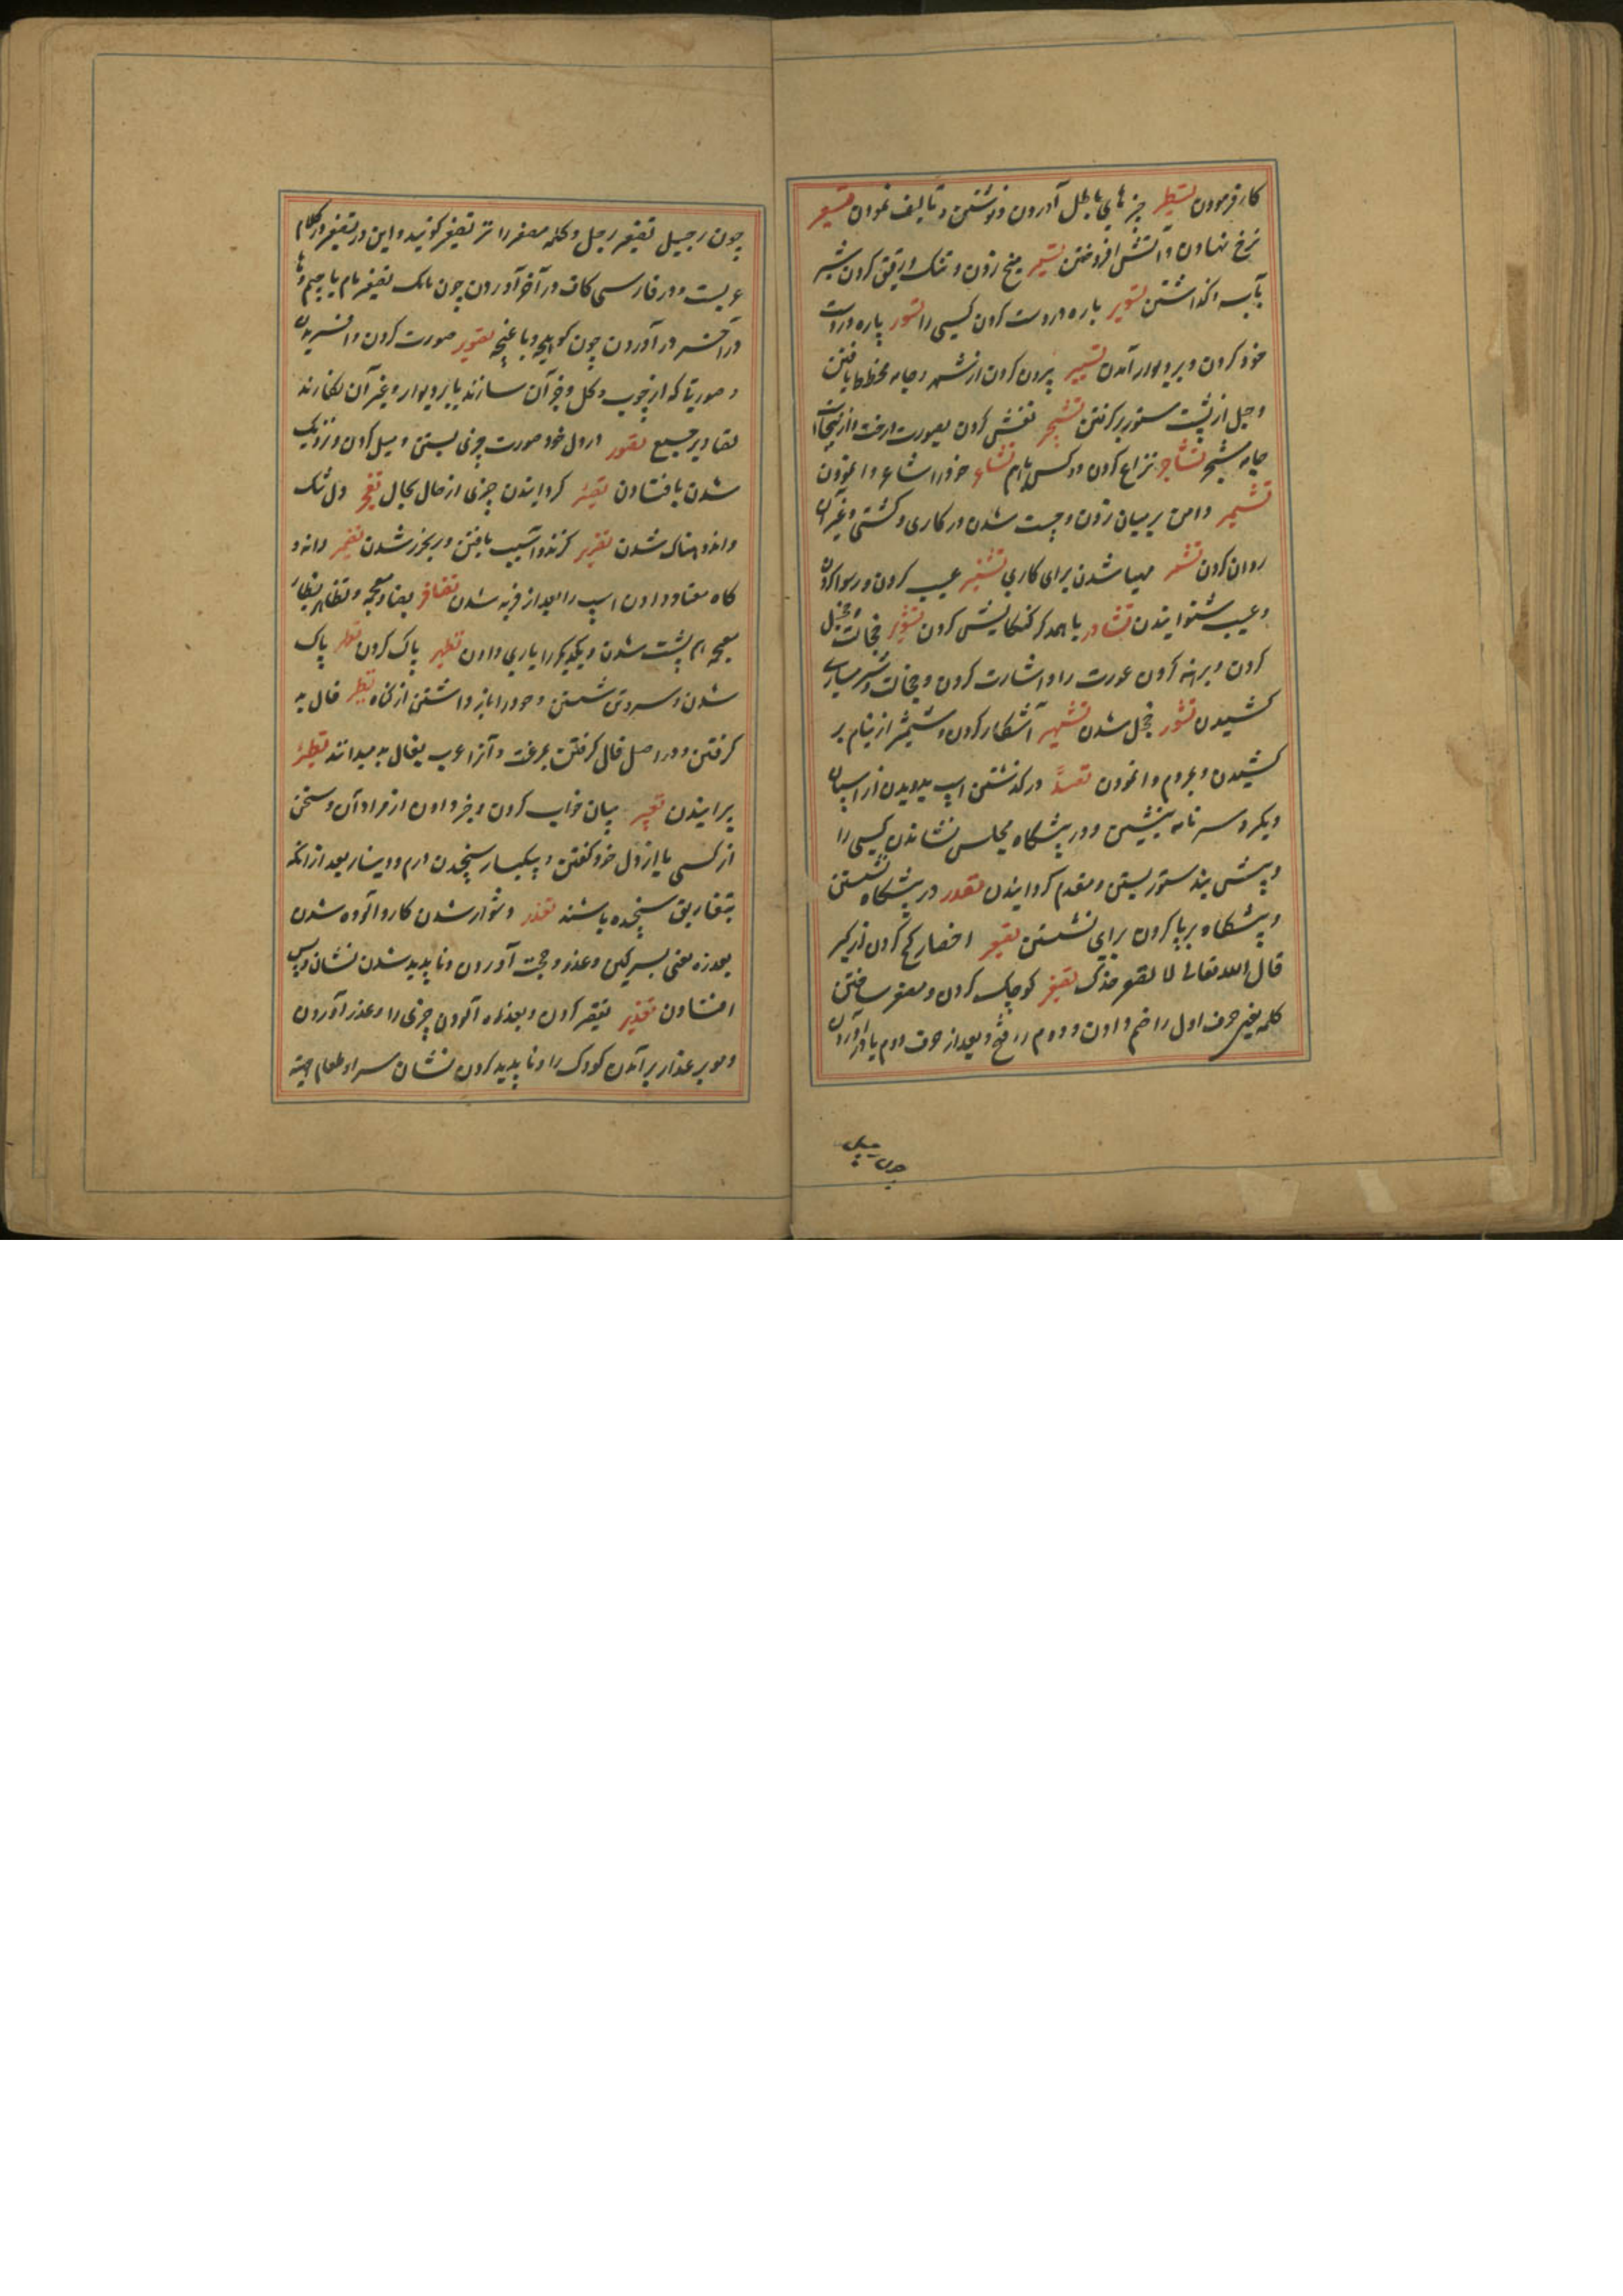 کار فرمودن تسطیر چیزهای باطل آوردن و نوشتن و تالیف نمودن تسعیر
نرخ نهادن و آتش افروختن تسمیر میخ زدن و تنک و رقیق کردن شیر
بآب و گذاشتن تسویر یاره در دست کردن کسی را تسور یاره در دست
خود کردن و بر دیوار آمدن تسییر بیرون کردن از شهر و جامه مخطط بافتن
و جل از پشت ستور برگرفتن تشجیر نقش کردن بصورت درخت و ازینجاست
جامه مشجر تشاجر نزاع کردن دو کس باهم تشاعر خود را شاعر وانمودن
تشمیر دامن بر میان زدن و چست شدن در کاری و کشتی و غیر آن
روان کردن تشمر مهیا شدن برای کاری تشنیر عیب کردن و رسوا کردن
و عیب شنوانیدن تشاور با همدگر کنکایش کردن تشویر خجالت و خجل
کردن و برهنه کردن عورت را و اشارت کردن و خجالت و شرمساری
کشیدن تشور خجل شدن تشهیر آشکار کردن و شمشیر از نیام بر
کشیدن و بمردم وانمودن تصدر در گذشتن اسپ بدویدن از اسپان
دیگر و سر نامه نبشتن و در پیشگاه مجلس نشاندن کسی را
و پیش بند ستور بستن و مقدم گردانیدن تصدر در پیشگاه نشستن
و پیشگاه برپا کردن برای نشستن تصعیر رخسار کج کردن از کبر
قال الله تعالی لا تصعر خدک تصغیر کوچک کردن و مصغر ساختن
کلمه یعنی حرف اول را ضم دادن و دوم را فتح و بعد از حرف دوم یا در آوردن
چون رجیل
چون رجیل تصغیر رجل و کلمه مصغر را نیز تصغیر گویند و این در تصغیر در کلام
عربیست و در فارسی کاف در آخر آوردن چون مامک تصغیر مام یا چیم و ها
در آخر در آوردن چون کوچه و باغچه تصویر صورت کردن و آفریدن
و صورتها که از چوب و گل و جز آن سازند یا بر دیوار و غیر آن نگارند
تصاویر جمع تصور در دل خود صورت چیزی بستن و میل کردن و نزدیک
شدن بافتادن تصییر گردانیدن چیزی از حال بحال تضجر دل تنگ
و اندوهناک شدن تضریر گزند و آسیب یافتن و ریخور شدن تضمیر دانه و
کاه معتاد دادن اسپ را بعد از فربه شدن تضافر بضاد معجمه و تظاهر بظاء
معجمه هم پشت شدن و یکدیگر را یاری دادن تطهیر پاک کردن تطهر پاک
شدن و سر و تن شستن و خود را باز داشتن از گناه تطیر فال بد
گرفتن و در اصل فال گرفتن بمرغست و آنرا عرب بفال بد میدانند تطییر
پرانیدن تعبیر بیان خواب کردن و خبر دادن از مراد آن و سخن
از کسی یا از دل خود گفتن و یکبار سنجیدن درم و دینار بعد از آنکه
بتفاریق سنجیده باشند تعذر دشوار شدن کار و آلوده شدن
بعذره یعنی بسرگین و عذر و حجت آوردن و ناپدید شدن نشان و پس
افتادن تعذیر تقصیر کردن و بعذره آلودن چیزی را و عذر آوردن
و موی بر عذار برآمدن کودک را و ناپدید کردن نشان سرا و طعام ختنه